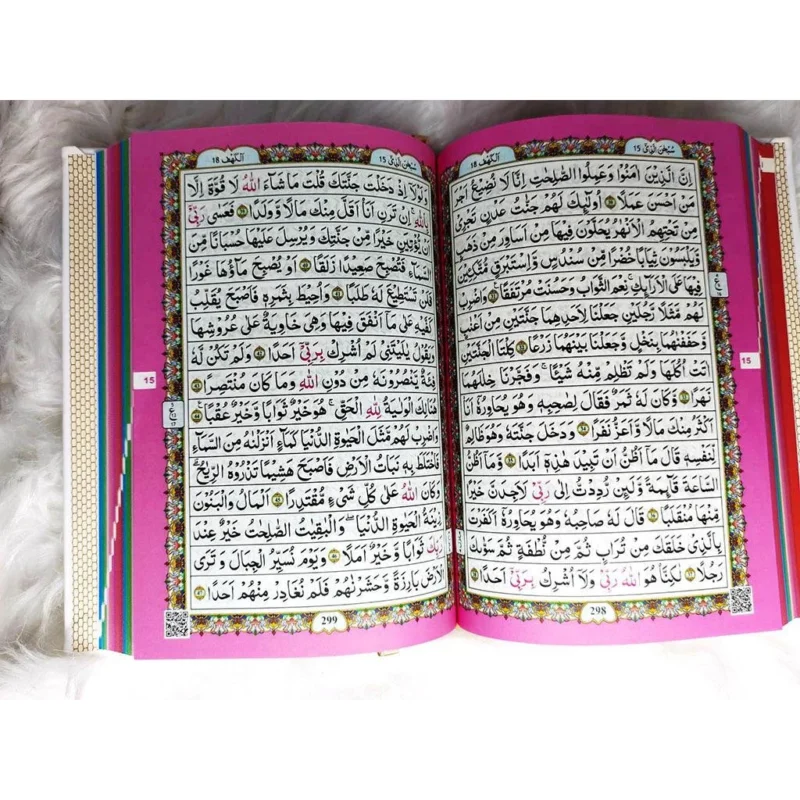 الكهف 18
سبحن الذی 15
اِنَّ الَّذِیْنَ اٰمَنُوْا وَعَمِلُوا الصّٰلِحٰتِ اِنَّا لَا نُضِیْعُ اَجْرَ
مَنْ اَحْسَنَ عَمَلًا اُولٰٓئِكَ لَهُمْ جَنّٰتُ عَدْنٍ تَجْرِیْ
مِنْ تَحْتِهِمُ الْاَنْهٰرُ یُحَلَّوْنَ فِیْهَا مِنْ اَسَاوِرَ مِنْ ذَهَبٍ
وَّیَلْبَسُوْنَ ثِیَابًا خُضْرًا مِّنْ سُنْدُسٍ وَّاِسْتَبْرَقٍ مُّتَّكِـِٕیْنَ
فِیْهَا عَلَی الْاَرَآىِٕكِ نِعْمَ الثَّوَابُ وَحَسُنَتْ مُرْتَفَقًا وَاضْرِبْ
لَهُمْ مَّثَلًا رَّجُلَیْنِ جَعَلْنَا لِاَحَدِهِمَا جَنَّتَیْنِ مِنْ اَعْنَابٍ
وَّحَفَفْنٰهُمَا بِنَخْلٍ وَّجَعَلْنَا بَیْنَهُمَا زَرْعًا كِلْتَا الْجَنَّتَیْنِ
اٰتَتْ اُكُلَهَا وَلَمْ تَظْلِمْ مِّنْهُ شَیْـًٔا وَّفَجَّرْنَا خِلٰلَهُمَا
نَهَرًا وَّكَانَ لَهٗ ثَمَرٌ فَقَالَ لِصَاحِبِهٖ وَهُوَ یُحَاوِرُهٗٓ اَنَا
اَكْثَرُ مِنْكَ مَالًا وَّاَعَزُّ نَفَرًا وَدَخَلَ جَنَّتَهٗ وَهُوَ ظَالِمٌ
لِّنَفْسِهٖ قَالَ مَآ اَظُنُّ اَنْ تَبِیْدَ هٰذِهٖٓ اَبَدًا وَّمَآ اَظُنُّ
السَّاعَةَ قَآىِٕمَةً وَّلَىِٕنْ رُّدِدْتُّ اِلٰی رَبِّیْ لَاَجِدَنَّ خَیْرًا
مِّنْهَا مُنْقَلَبًا قَالَ لَهٗ صَاحِبُهٗ وَهُوَ یُحَاوِرُهٗٓ اَكَفَرْتَ
بِالَّذِیْ خَلَقَكَ مِنْ تُرَابٍ ثُمَّ مِنْ نُّطْفَةٍ ثُمَّ سَوّٰىكَ
رَجُلًا لٰكِنَّا۠ هُوَ اللّٰهُ رَبِّیْ وَلَآ اُشْرِكُ بِرَبِّیْٓ اَحَدًا
298
15
الكهف 18
سبحن الذی 15
وَلَوْلَآ اِذْ دَخَلْتَ جَنَّتَكَ قُلْتَ مَا شَآءَ اللّٰهُ لَا قُوَّةَ اِلَّا
بِاللّٰهِ اِنْ تَرَنِ اَنَا اَقَلَّ مِنْكَ مَالًا وَّوَلَدًا فَعَسٰی رَبِّیْٓ
اَنْ یُّؤْتِیَنِ خَیْرًا مِّنْ جَنَّتِكَ وَیُرْسِلَ عَلَیْهَا حُسْبَانًا مِّنَ
السَّمَآءِ فَتُصْبِحَ صَعِیْدًا زَلَقًا اَوْ یُصْبِحَ مَآؤُهَا غَوْرًا
فَلَنْ تَسْتَطِیْعَ لَهٗ طَلَبًا وَاُحِیْطَ بِثَمَرِهٖ فَاَصْبَحَ یُقَلِّبُ
كَفَّیْهِ عَلٰی مَآ اَنْفَقَ فِیْهَا وَهِیَ خَاوِیَةٌ عَلٰی عُرُوْشِهَا
وَیَقُوْلُ یٰلَیْتَنِیْ لَمْ اُشْرِكْ بِرَبِّیْٓ اَحَدًا وَلَمْ تَكُنْ لَّهٗ
فِئَةٌ یَّنْصُرُوْنَهٗ مِنْ دُوْنِ اللّٰهِ وَمَا كَانَ مُنْتَصِرًا
هُنَالِكَ الْوَلَایَةُ لِلّٰهِ الْحَقِّ هُوَ خَیْرٌ ثَوَابًا وَّخَیْرٌ عُقْبًا
وَاضْرِبْ لَهُمْ مَّثَلَ الْحَیٰوةِ الدُّنْیَا كَمَآءٍ اَنْزَلْنٰهُ مِنَ السَّمَآءِ
فَاخْتَلَطَ بِهٖ نَبَاتُ الْاَرْضِ فَاَصْبَحَ هَشِیْمًا تَذْرُوْهُ الرِّیٰحُ
وَكَانَ اللّٰهُ عَلٰی كُلِّ شَیْءٍ مُّقْتَدِرًا اَلْمَالُ وَالْبَنُوْنَ
زِیْنَةُ الْحَیٰوةِ الدُّنْیَا وَالْبٰقِیٰتُ الصّٰلِحٰتُ خَیْرٌ عِنْدَ
رَبِّكَ ثَوَابًا وَّخَیْرٌ اَمَلًا وَیَوْمَ نُسَیِّرُ الْجِبَالَ وَتَرَی
الْاَرْضَ بَارِزَةً وَّحَشَرْنٰهُمْ فَلَمْ نُغَادِرْ مِنْهُمْ اَحَدًا
299
15